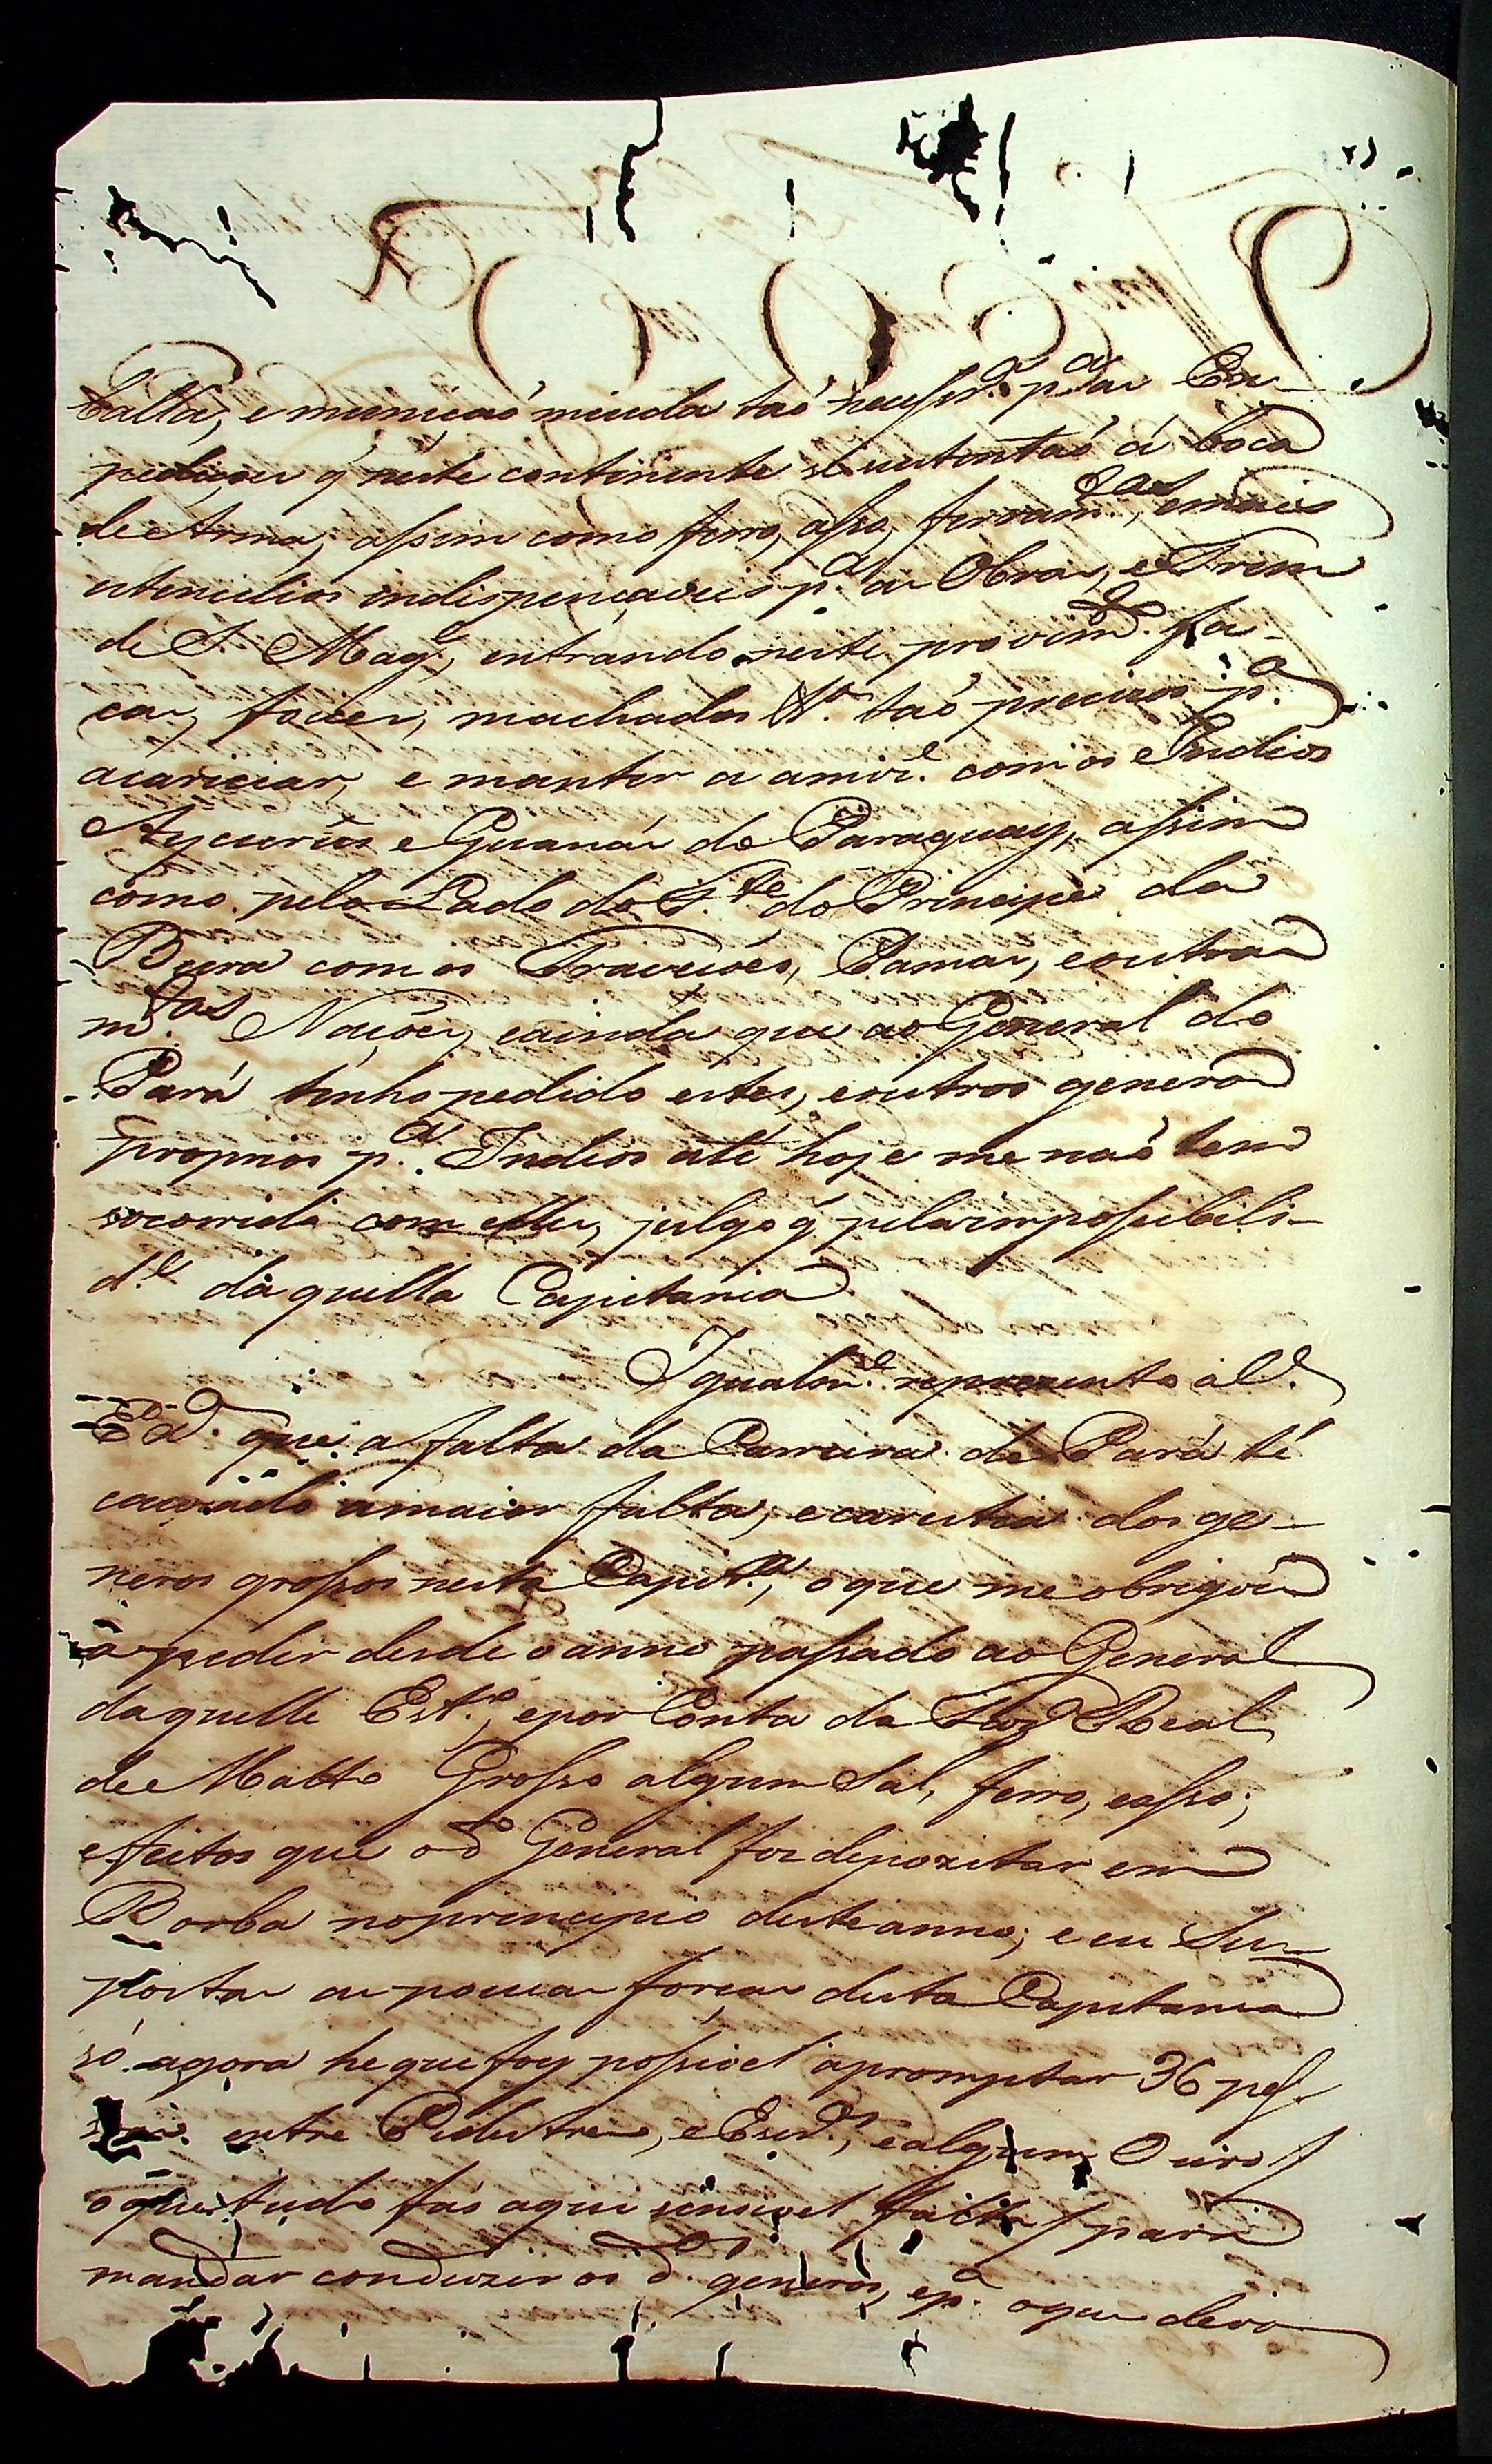 balla, e municaõ miuda taõ necessr.ª p.ª as Ex-
pediçoes q̃ neste continente se sustentaõ á boca
de Arma, assim como ferro, asso, ferram.tas, e mais
utencilios indispencaveis p.ª as Obras, e Trem
de S. Mag.e, entrando neste provim.to fa-
cas, fouces, machados &.ª taõ precizos p.ª
acariciar, e manter a amiz.e com os Indios
Aycurús e Guanás do Paraguay, assim
como pelo Lado do F.te do Principe da
Beira com os Travessoes, Pamas, e outras
m.tas Naçoẽs, e ainda que ao General do
Pará tenho pedido estes, e outros generos
proprios p.ª Indios até hoje me naõ tem
socorrido com elles, julgo q̃ pela impossibili-
d.e daquella Capitania.
Igualm.e reprezento a V.
Ex.ª que a falta da Carreira do Pará tẽ
cauzado a maior falta, e carestia dos ge-
neros grossos nesta Capit.ª, o que me obrigou
a pedir desde o anno passado ao General
daquelle Est.º, e por Conta da Faz.ª Real
de Matto Grosso algum Sal, ferro, e asso;
effeitos que o d.º General fes depozitar em
Borba no principio deste anno; e eu Su-
postas as poucas forças desta Capitania
só agora he que foy possivel apromptar 36 pes-
soas entre Pedestres, e Escr.os, e algum Ouro /
o que tudo fas aqui sensivel falta / para
mandar conduzir os d.os generos, e p.ª o que devo